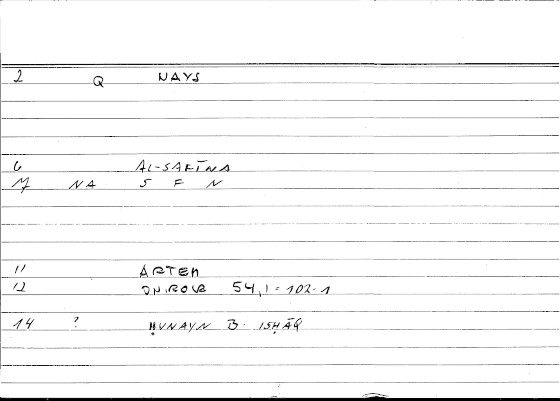 2 Q NAYS
6 AL-SAFĪNA
M NA S F N
11 ARTEM
12 ONIROCR 54,1 = 102.1
14 ? ḤUNAYN B. ISḤĀQ